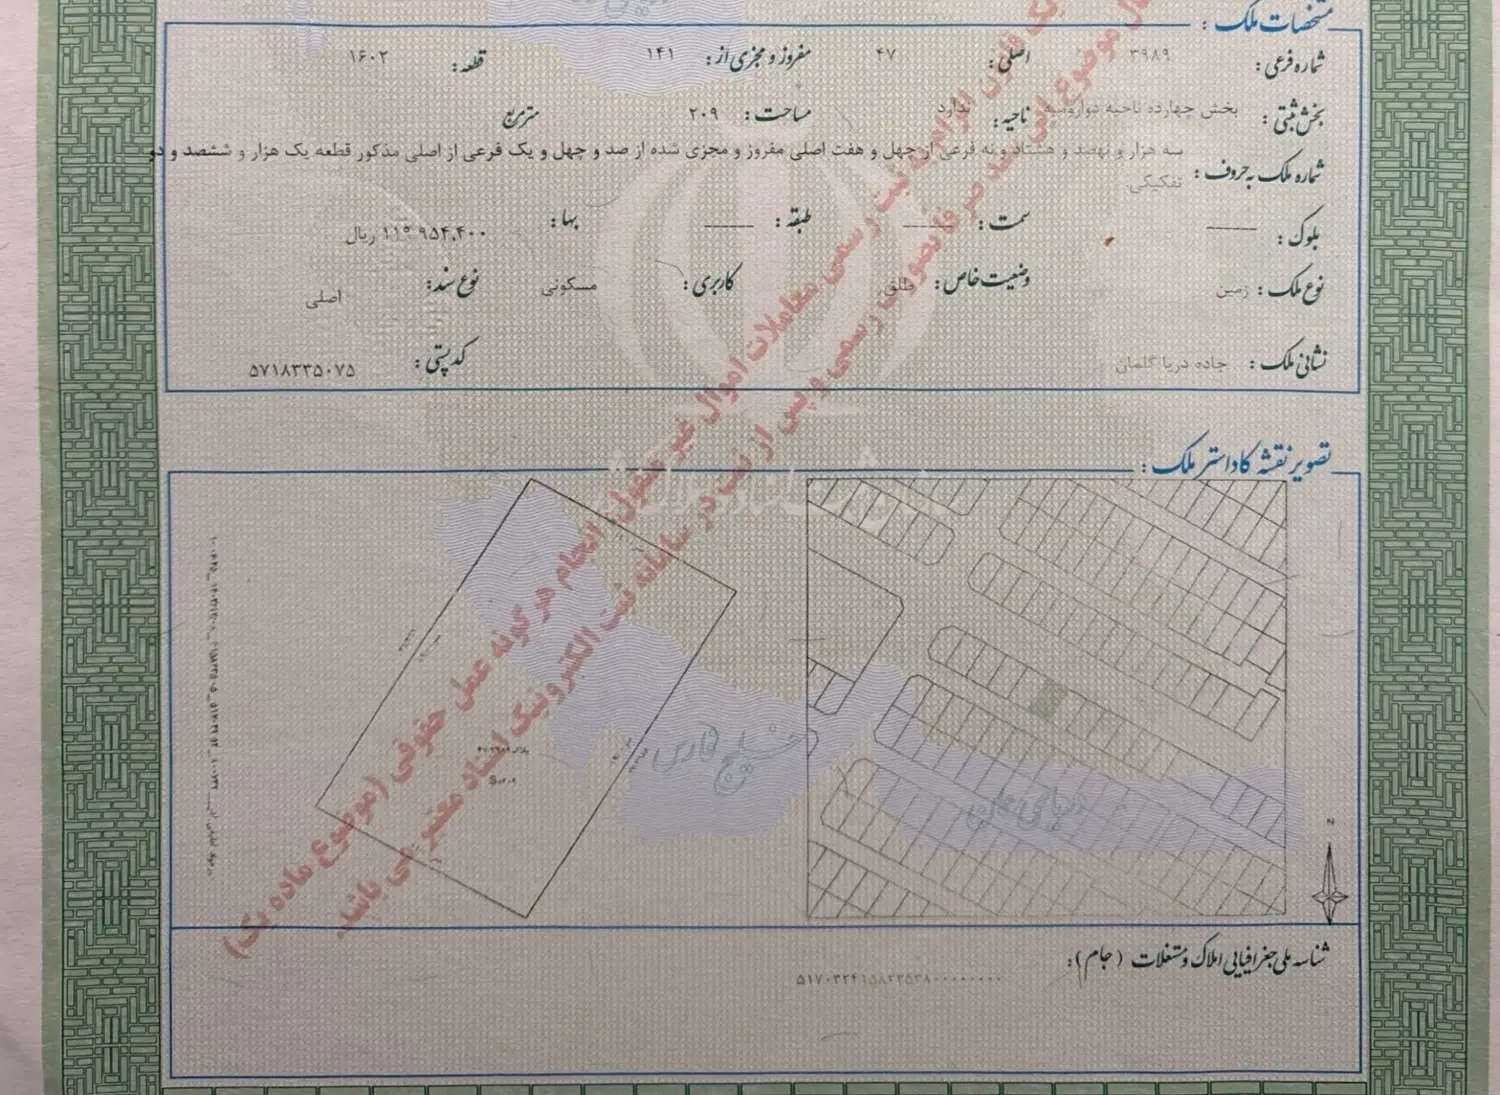 مشخصات ملک :
شماره فرعی : ۳۹۸۹ اصلی : ۴۷ مفروز و مجزی از : ۱۴۱ قطعه : ۱۶۰۲
بخش ثبتی : بخش چهارده ناحیه دوارومیه ناحیه : ندارد مساحت : ۲۰۹ مترمربع
شماره ملک به حروف : سه هزار و نهصد و هشتاد و نه فرعی از چهل و هفت اصلی مفروز و مجزی شده از صد و چهل و یک فرعی از اصلی مذکور قطعه یک هزار و ششصد و دو
تفکیکی.
بلوک : سمت : طبقه : بها : ۱۱۹۰۹۵۴,۴۰۰ ریال
نوع ملک : زمین وضعیت خاص : طلق کاربری : مسکونی نوع سند : اصلی
نشانی ملک : جاده دریا گلمان کدپستی : ۵۷۱۸۳۳۵۰۷۵
قانون الزام به ثبت رسمی معاملات اموال غیر منقول، انجام هر گونه عمل حقوقی (موضوع ماده یک)
موضوع این سند صرفا بصورت رسمی و پس از ثبت در سامانه ثبت الکترونیک اسناد معتبر می باشد.
تصویر نقشه کاداستر ملک :
خلیج فارس
دریای عمان
N
شناسه ملی جغرافیایی املاک و مستغلات (جام) :